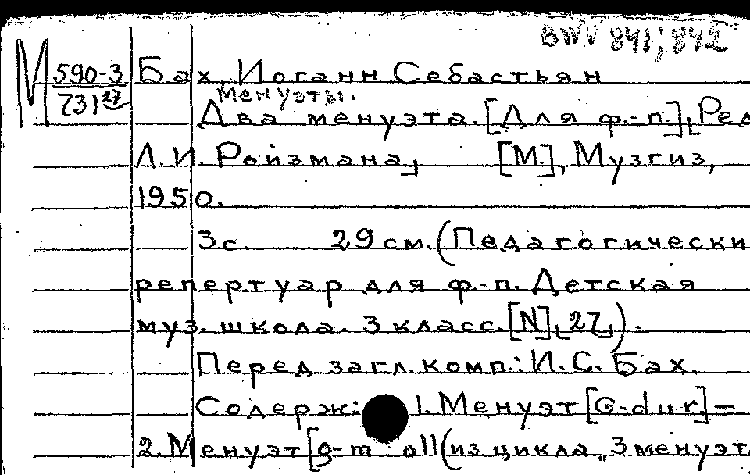 BWV 841; 842
М 590-3 Бах, Иоганн Себастьян
731 27 Менуэты.
Два менуэта. [Для ф.-п.], Ред
Л.И. Ройзмана, [М.], Музгиз,
1950.
3 с. 29 см. (Педагогически
репертуар для ф.-п. Детская
муз. школа. 3 класс. [N], 27,).
Перед загл. комп.: И.С. Бах.
Содерж: 1. Менуэт [G-dur] –
2. Менуэт [g-moll (из цикла „3 менуэт